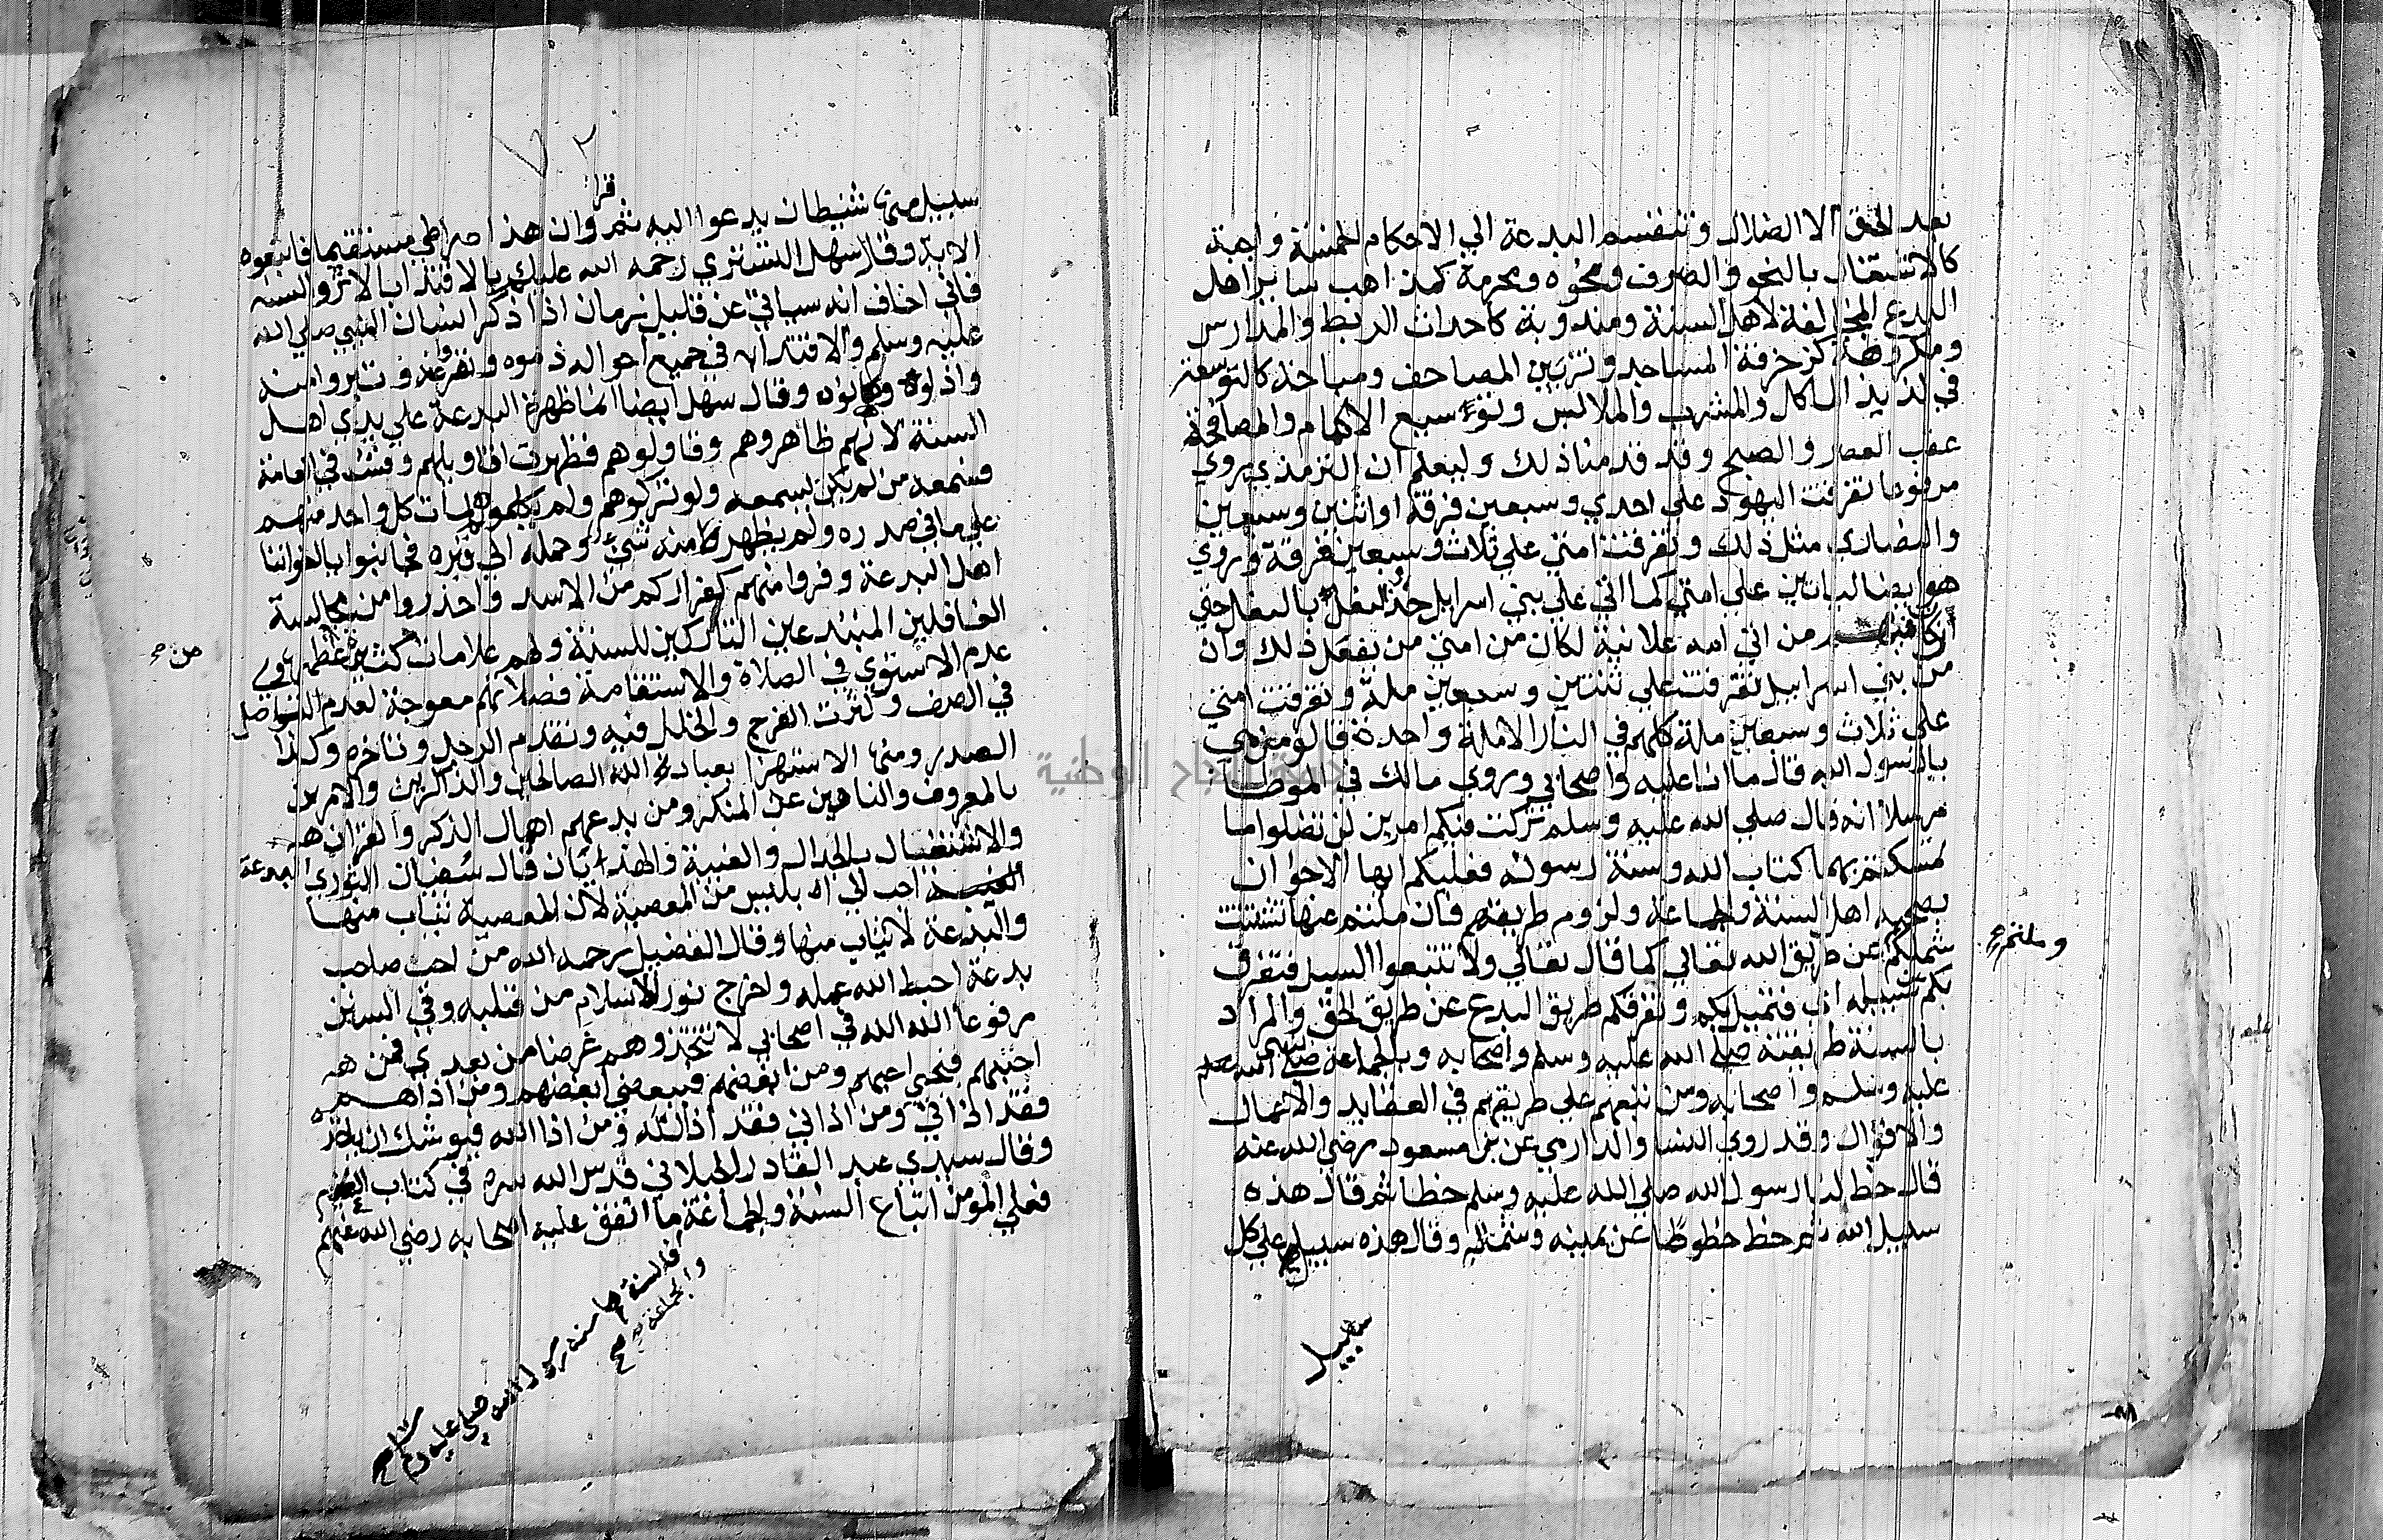 بعد الحق الا الضلال وتنقسم البدعة الي الاحكام الخمسة واجبة
كالاشتغال بالنحو والصرف ونحوه ومحرمة كمذاهب سائر اهل
البدع المخالفة لاهل السنة ومندوبة كاحداث الربط والمدارس
ومكروهة كزخرفة المساجد وتزيين المصاحف ومباحة كالتوسعة
في لذيذ الماكل والمشرب والملابس وتوسيع الاكمام والمصافحة
عقب العصر والصبح وقد قدمنا ذلك وليعلم ان الترمذي روي
مرفوعا تفرقت اليهود علي احدي وسبعين فرقة او اثنتين وسبعين
والنصاري مثل ذلك وتفرقت امتي علي ثلاث وسبعين فرقة وروي
هو ايضا لياتين علي امتي كما اتي علي بني اسرايل حذو النعل بالنعل حتي
ان كان فيهم من اتي امه علانية لكان من امتي من يفعل ذلك وان
من بني اسراييل تفرقت علي ثنتين وسبعين ملة وتفرقت امتي
علي ثلاث وسبعين ملة كلهم في النار الا ملة واحدة قالوا من هي
يا رسول الله قال ما انا عليه واصحابي وروي مالك في الموطا
مرسلا انه قال صلي الله عليه وسلم تركت فيكم امرين لن تضلوا ما
تمسكتم بهما كتاب الله وسنة رسوله فعليكم ايها الاخوان
اهل السنة والجماعة ولزوم طريقهم فان ملتم عنها تشتت
وملتم صح
شملكم عن طريق الله تعالي كما قال تعالي ولا تتبعوا السبل فتفرق
بكم عن سبيله اي فتميل بكم وتفرقكم طريق البدع عن طريق الحق والمراد
بالسنة طريقته صلي الله عليه وسلم واصحابه وبالجماعة
عليه وسلم واصحابه ومن تبعهم علي طريقهم في العقايد والاعمال
والاقوال وقد روي النسا والدارمي عن بن مسعود رضي الله عنه
قال خط لنا رسول الله صلي الله عليه وسلم خطا ثم قال هذه
سبيل الله ثم خط خطوطا عن يمينه وشماله وقال هذه سبيل علي كل
سبيل
٧٢
سبيل منها شيطان يدعوا اليه ثم قرا وان هذا صراطي مستقيما فاتبعوه
الاية وقال سهل التستري رحمه الله عليكم بالاقتدا بالاثر والسنة
فاني اخاف انه سياتي عن قليل زمان اذا ذكر انسان النبي صلي الله
عليه وسلم والاقتدا به في جميع احواله ذموه ونفروا عنه وتبروا منه
واذلوه وقال سهل ايضا انما ظهرت البدعة علي يدي اهل
السنة لانهم ظاهروهم وقاولوهم فظهرت اقاويلهم وفشت في العامة
فسمعه من لم يكن يسمعه ولو تركوهم ولم يكلموهم لمات كل واحد منهم
علي ما في صدره ولم يظهر منه شئ وحمله الي قبره فجانبوا يا اخواننا
اهل البدعة وفروا منهم كفراركم من الاسد واحذروا من مجالسة
الغافلين المبتدعين التاركين للسنة ولهم علامات كثيرة
من صح
عدم الاستوي في الصلاة والاستقامة فصلاتهم معوجة لعدم التواصل
في الصف وكثرت الفرج والخلل فيه وتقدم الرجل وتاخره وكذا
الصدر ومنها الاستهزا بعباد الله الصالحين والذاكرين والامرين
بالمعروف والناهين عن المنكر ومن بدعهم اهمال الذكر والقران
والاشتغال بالجدال والغيبة والهذايان قال سفيان الثوري البدعة
احب الي ابليس من المعصية لان المعصية يتاب منها
والبدعة لا يتاب منها وقال الفضيل رحمه الله من احب صاحب
بدعة احبط الله عمله واخرج نور الاسلام من قلبه وفي السنن
مرفوعا الله الله في اصحابي لا تتخذوهم غرضا من بعدي فمن
احبهم فبحبي احبهم ومن ابغضهم فببغضي ابغضهم ومن اذاهم
فقد اذاني ومن اذاني فقد اذا الله ومن اذا الله فيوشك ان ياخذه
وقال سيدي عبد القادر الجيلاني قدس الله سره في كتاب
فعلي المؤمن اتباع السنة والجماعة ما اتفق عليه اصحابه رضي الله عنهم
فالسنة ما سنه رسول الله صلي عليه وسلم
والجماعة صح
جامعة النجاح الوطنية